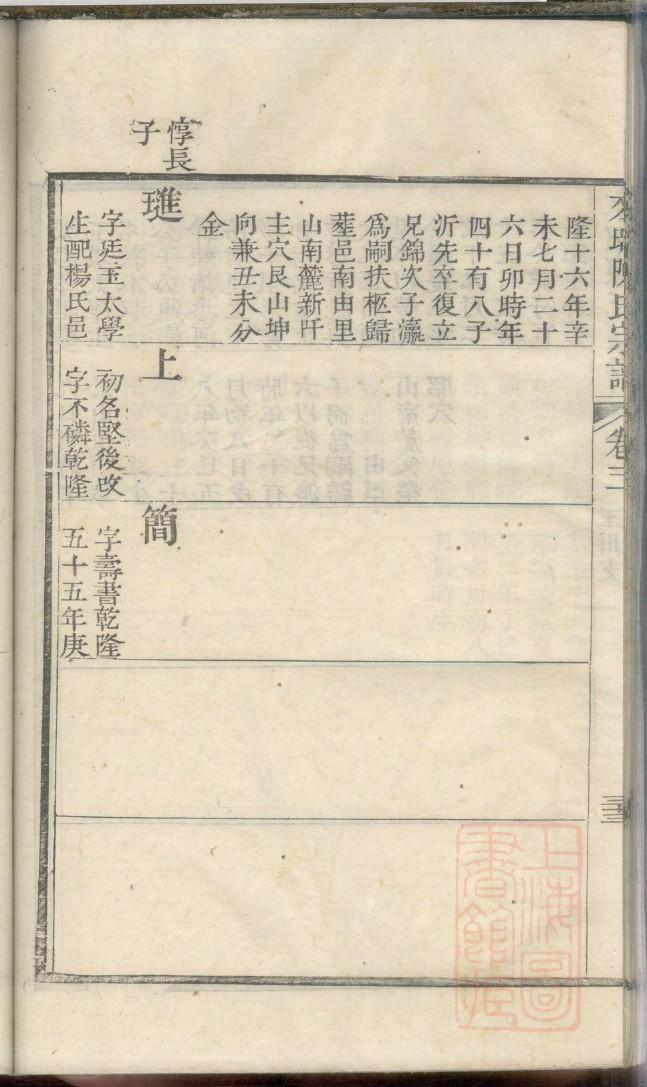 陳氏宗譜
卷三
隆十六年辛
未七月二十
六日卯時年
四十有八子
沂先卒復立
兄錦次子瀛
爲嗣扶柩歸
塟邑南由里
山南麓新阡
主穴艮山坤
向兼丑未分
金
惇長
子
璡
字廷玉太學
生配楊氏邑
上
初名堅後改
字不磷乾隆
簡
字壽書乾隆
五十五年庚
上海圖
書館藏